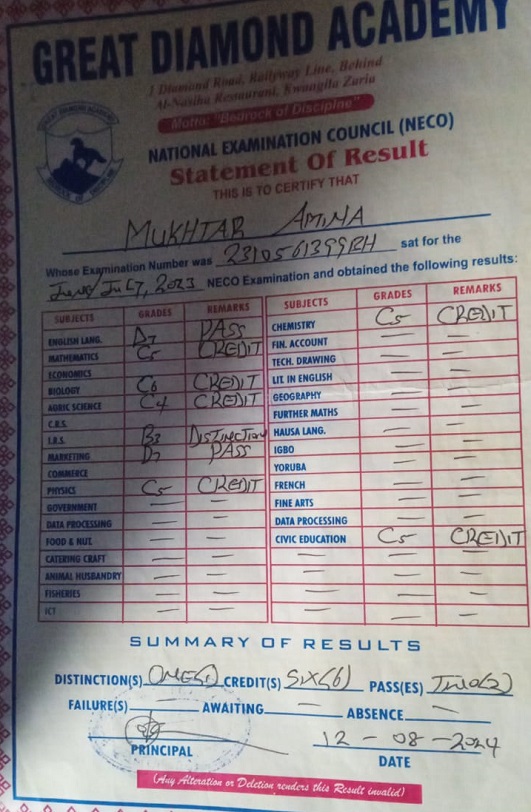 GREAT DIAMOND ACADEMY
1 Diamond Road, Railyway Line, Behind
Al-Nasiha Restaurant, Kwangila Zaria
Motto: "Bedrock of Discipine"
GREAT DIAMOND ACADEMY
BEDROCK OF DISCIPLINE
NATIONAL EXAMINATION COUNCIL (NECO)
Statement Of Result
THIS IS TO CERTIFY THAT
MUKHTAR AMINA
Whose Examination Number was 2310561399RH sat for the
June/July, 2023 NECO Examination and obtained the following results:
SUBJECTS GRADES REMARKS
ENGLISH LANG. D7 PASS
MATHEMATICS C5 CREDIT
ECONOMICS
BIOLOGY C6 CREDIT
AGRIC SCIENCE C4 CREDIT
C.R.S. —
I.R.S. B3 DISTINCTION
MARKETING D7 PASS
COMMERCE
PHYSICS C5 CREDIT
GOVERNMENT — —
DATA PROCESSING — —
FOOD & NUT. — —
CATERING CRAFT — —
ANIMAL HUSBANDRY — —
FISHERIES — —
ICT — —
SUBJECTS GRADES REMARKS
CHEMISTRY C5 CREDIT
FIN. ACCOUNT — —
TECH. DRAWING — —
LIT. IN ENGLISH — —
GEOGRAPHY — —
FURTHER MATHS — —
HAUSA LANG. — —
IGBO — —
YORUBA — —
FRENCH — —
FINE ARTS — —
DATA PROCESSING — —
CIVIC EDUCATION C5 CREDIT
— — —
— — —
— — —
— — —
SUMMARY OF RESULTS
DISTINCTION(S) ONE(1) CREDIT(S) SIX(6) PASS(ES) TWO(2)
FAILURE(S) — AWAITING — ABSENCE —
PRINCIPAL
12-08-2024
DATE
(Any Alteration or Deletion renders this Result invalid)